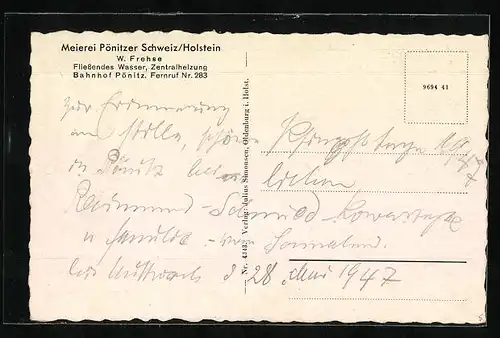 Meierei Pönitzer Schweiz/Holstein
W. Frehse
Fließendes Wasser, Zentralheizung
Bahnhof Pönitz. Fernruf Nr. 283
9694 41
Nr. 4343 Verlag: Julius Simonsen, Oldenburg i. Holst.
Zur Erinnerung
an stille, schöne Pfingsttage 1947
in Pönitz
u Familie - vom Sonnabend
bis Mittwoch d 28. Mai 1947